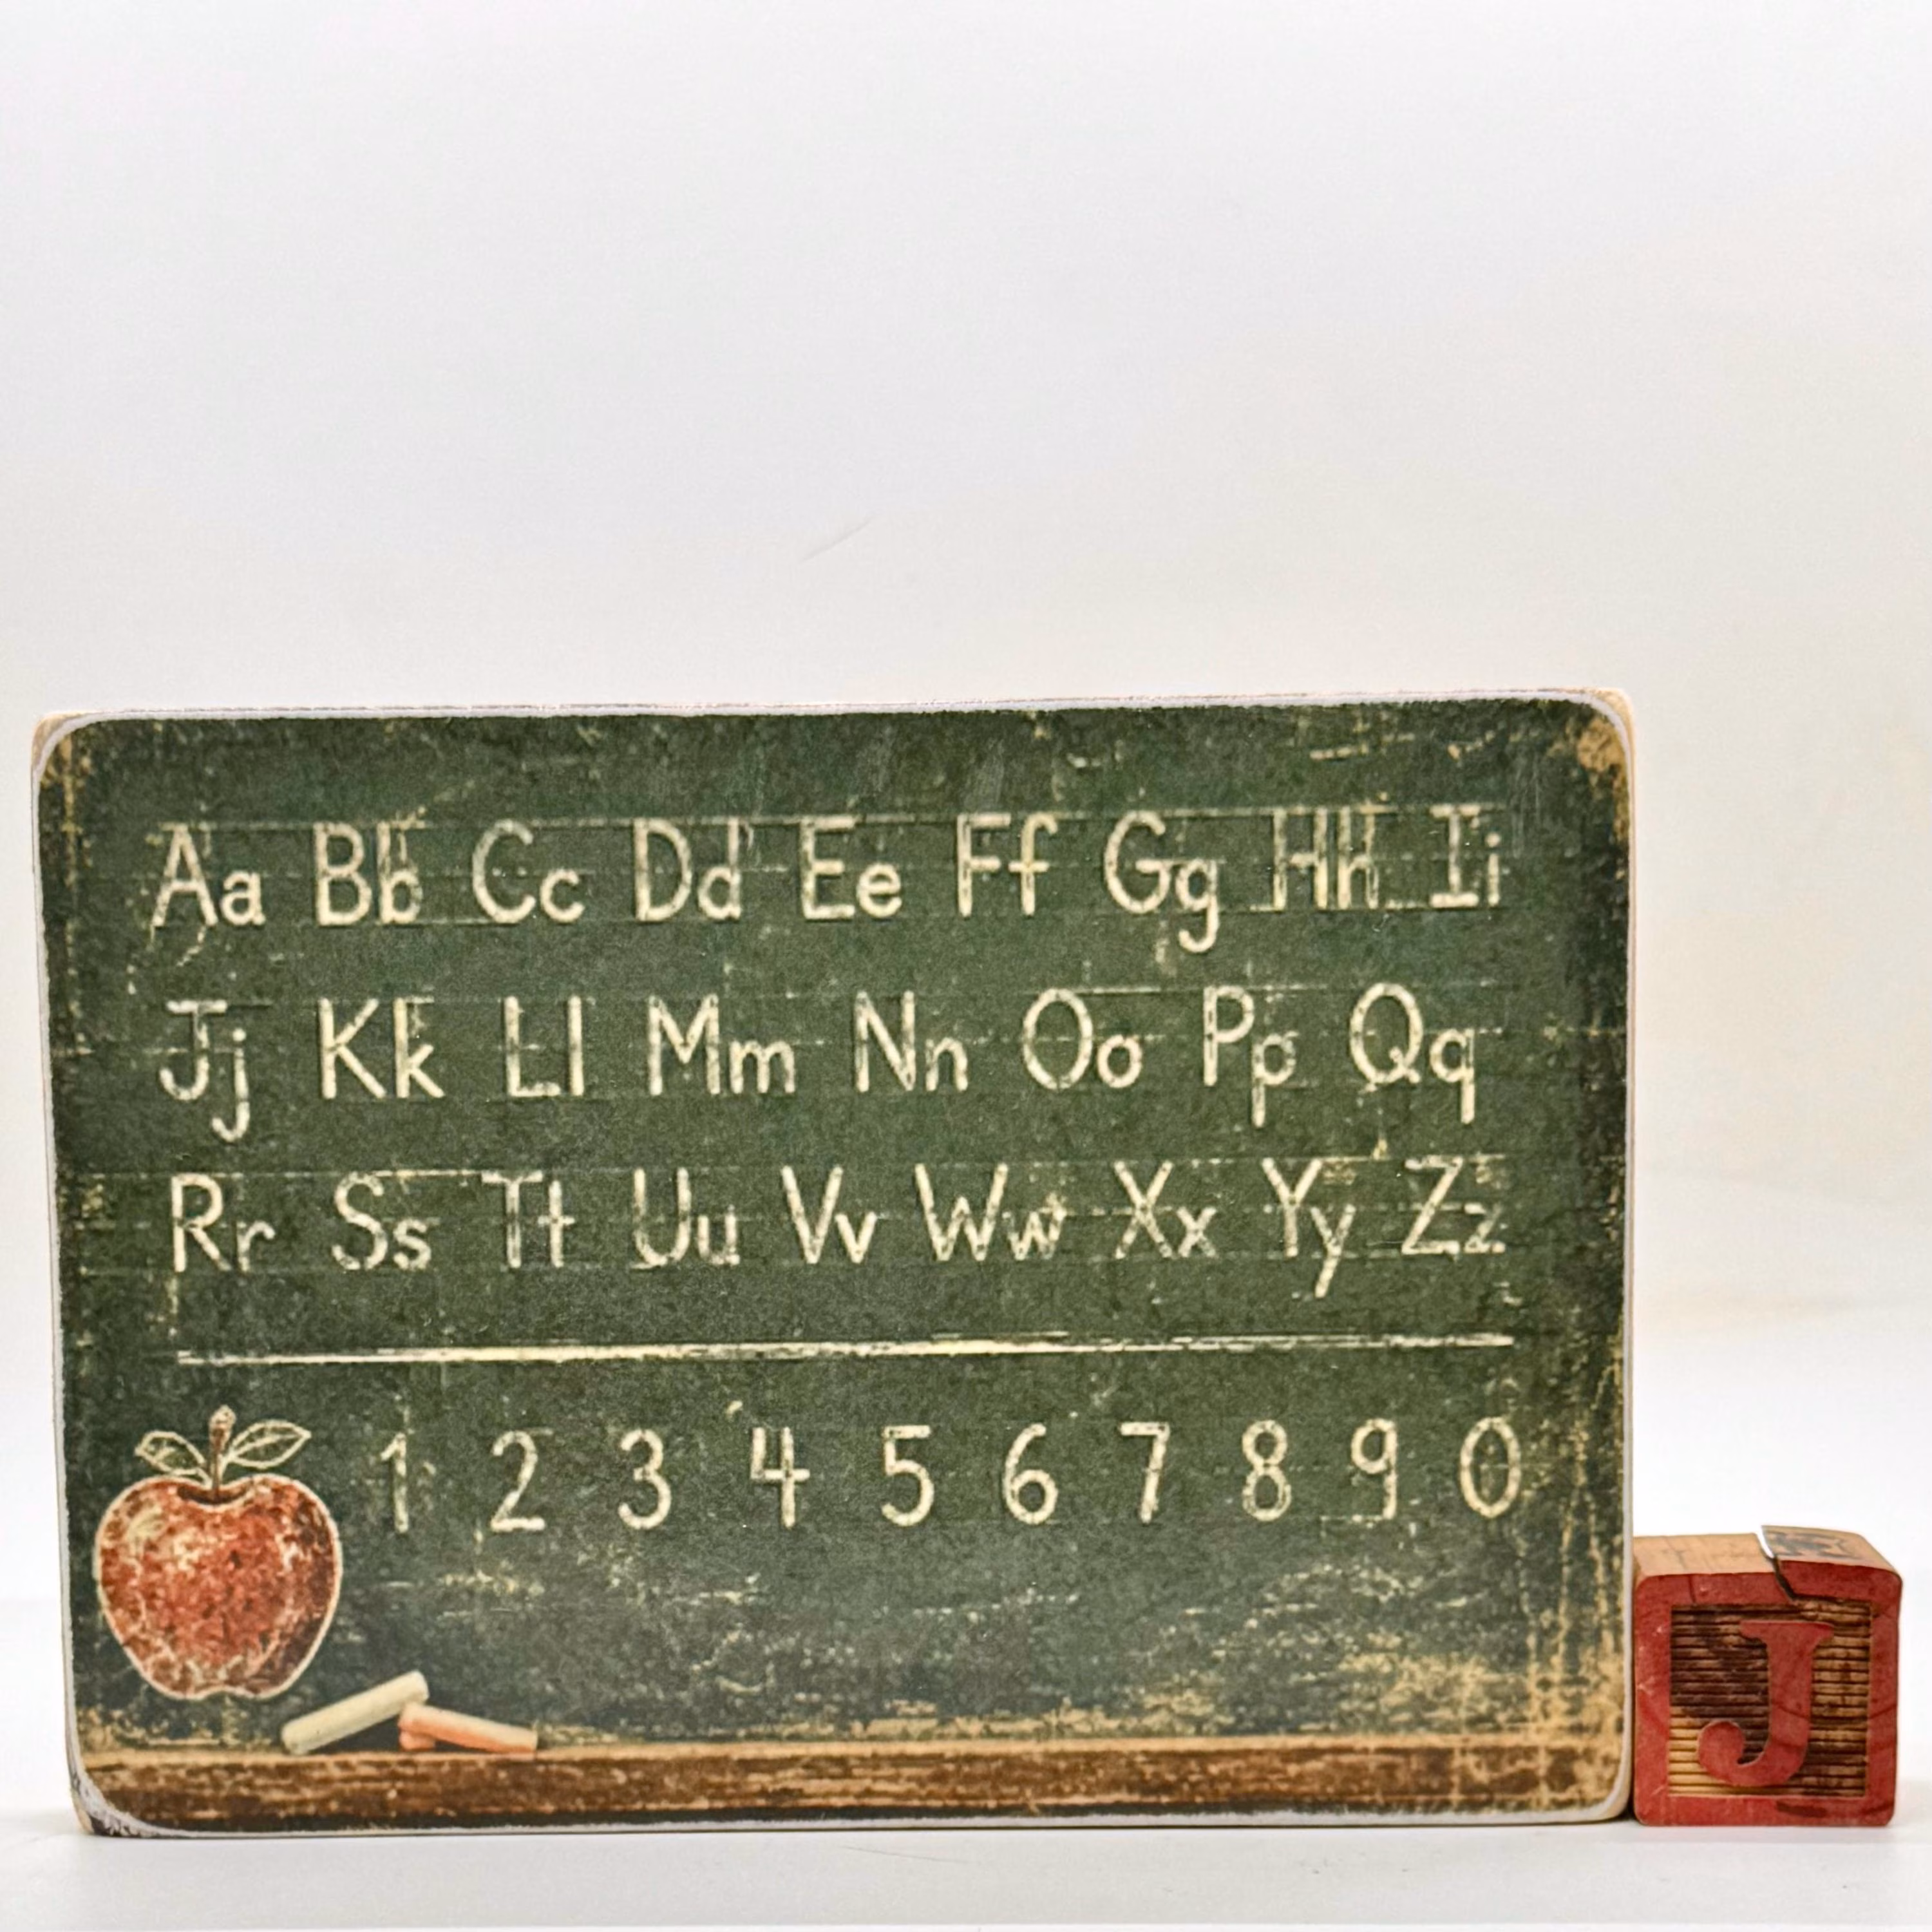 Aa Bb Cc Dd Ee Ff Gg Hh Ii
Jj Kk Ll Mm Nn Oo Pp Qq
Rr Ss Tt Uu Vv Ww Xx Yy Zz
1 2 3 4 5 6 7 8 9 0
J